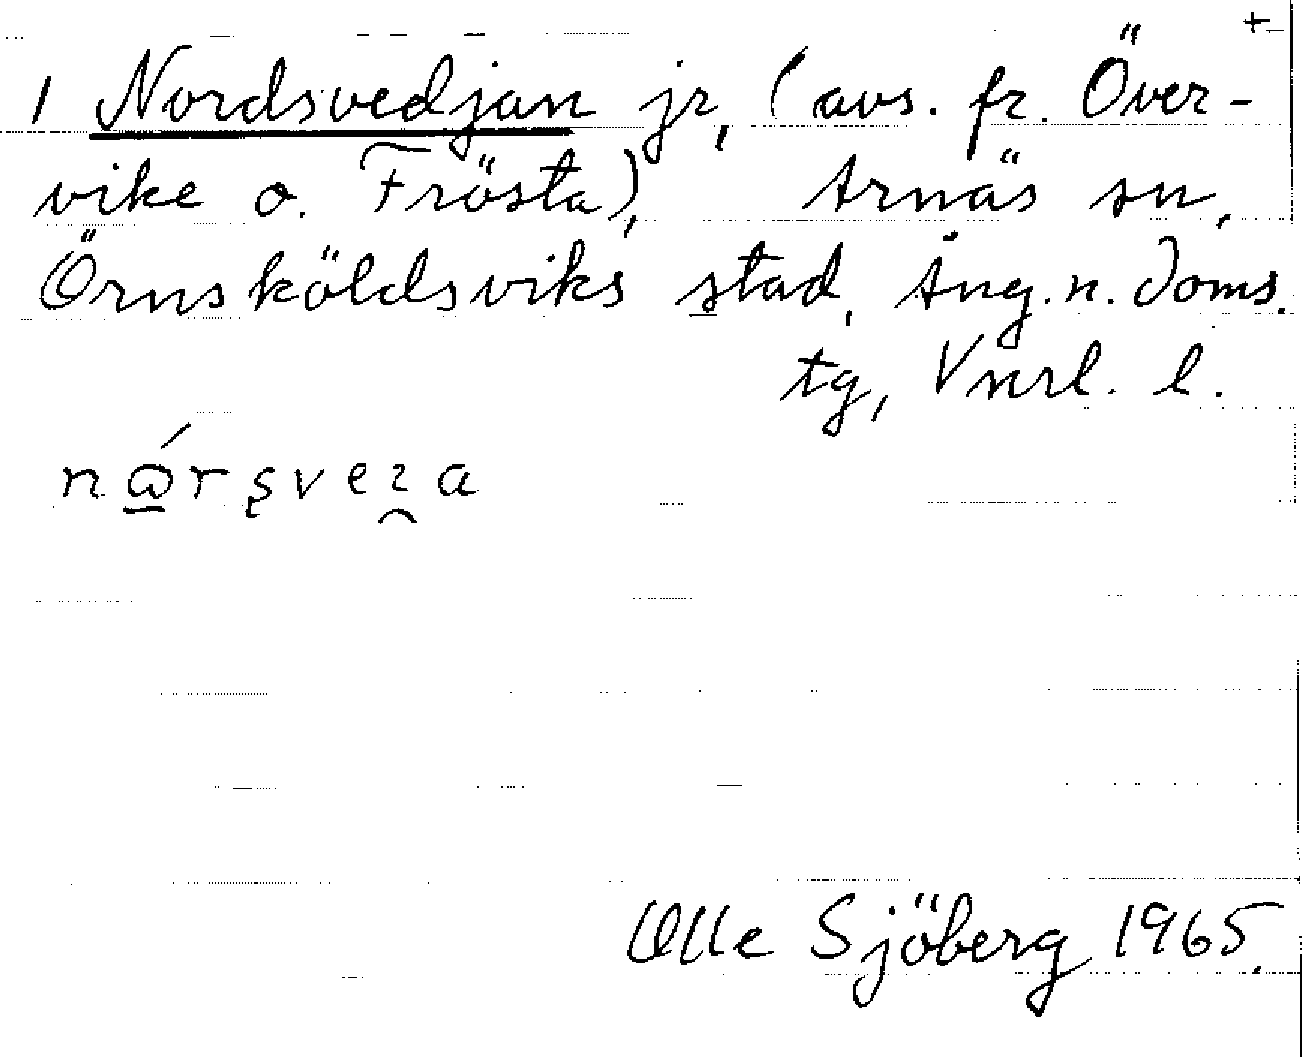 +
1 Nordsvedjan jr, (avs. fr. Över-
vike o. Frösta), Arnäs sn,
Örnsköldsviks stad, Ång. n. doms.
tg, Vnrl. l.
Olle Sjöberg 1965.